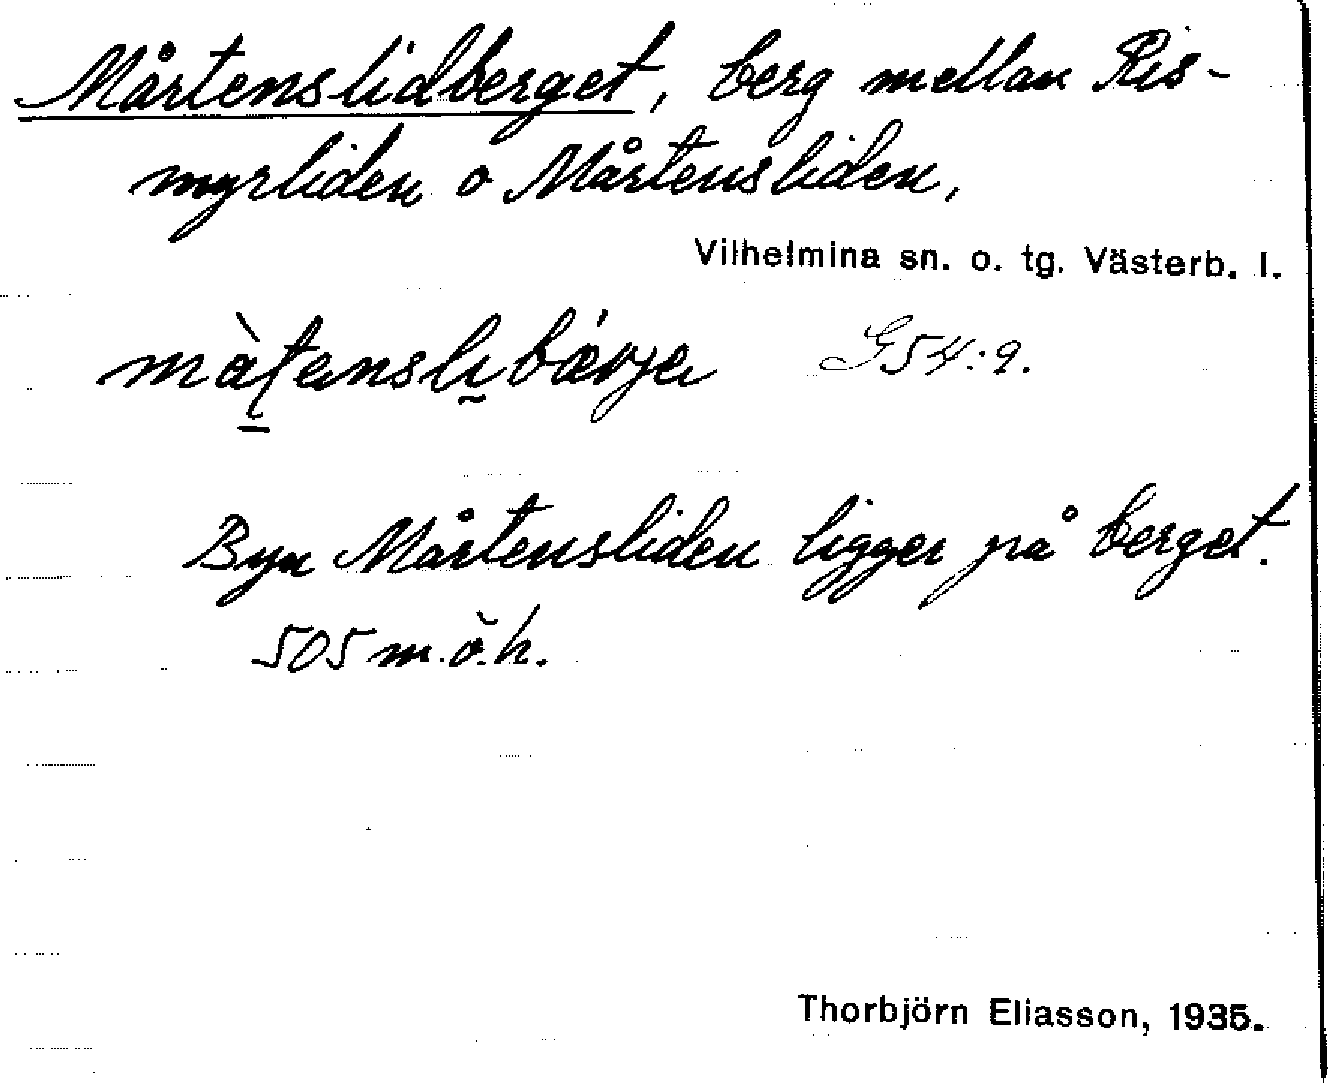 Mårtenslidberget, berg mellan Ris-
myrliden o Mårtensliden,
Vilhelmina sn. o. tg. Västerb. l.
G54:9.
Byn Mårtensliden ligger på berget.
505 m.ö.h.
Thorbjörn Eliasson, 1935.